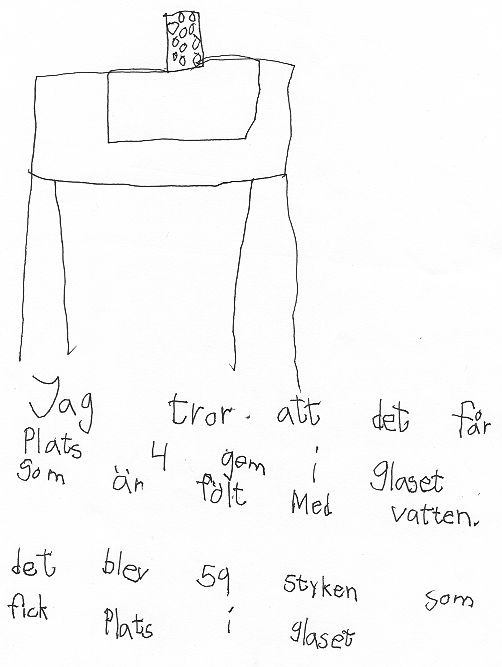 Jag tror. att det får
Plats 4 gem i glaset
som är fölt Med vatten.
det blev 59 styken som
fick Plats i glaset